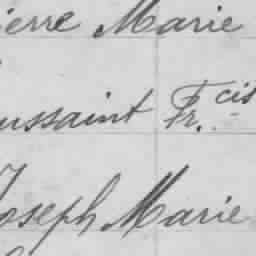 ierre Marie
ussaint Fr.cis
Joseph Marie